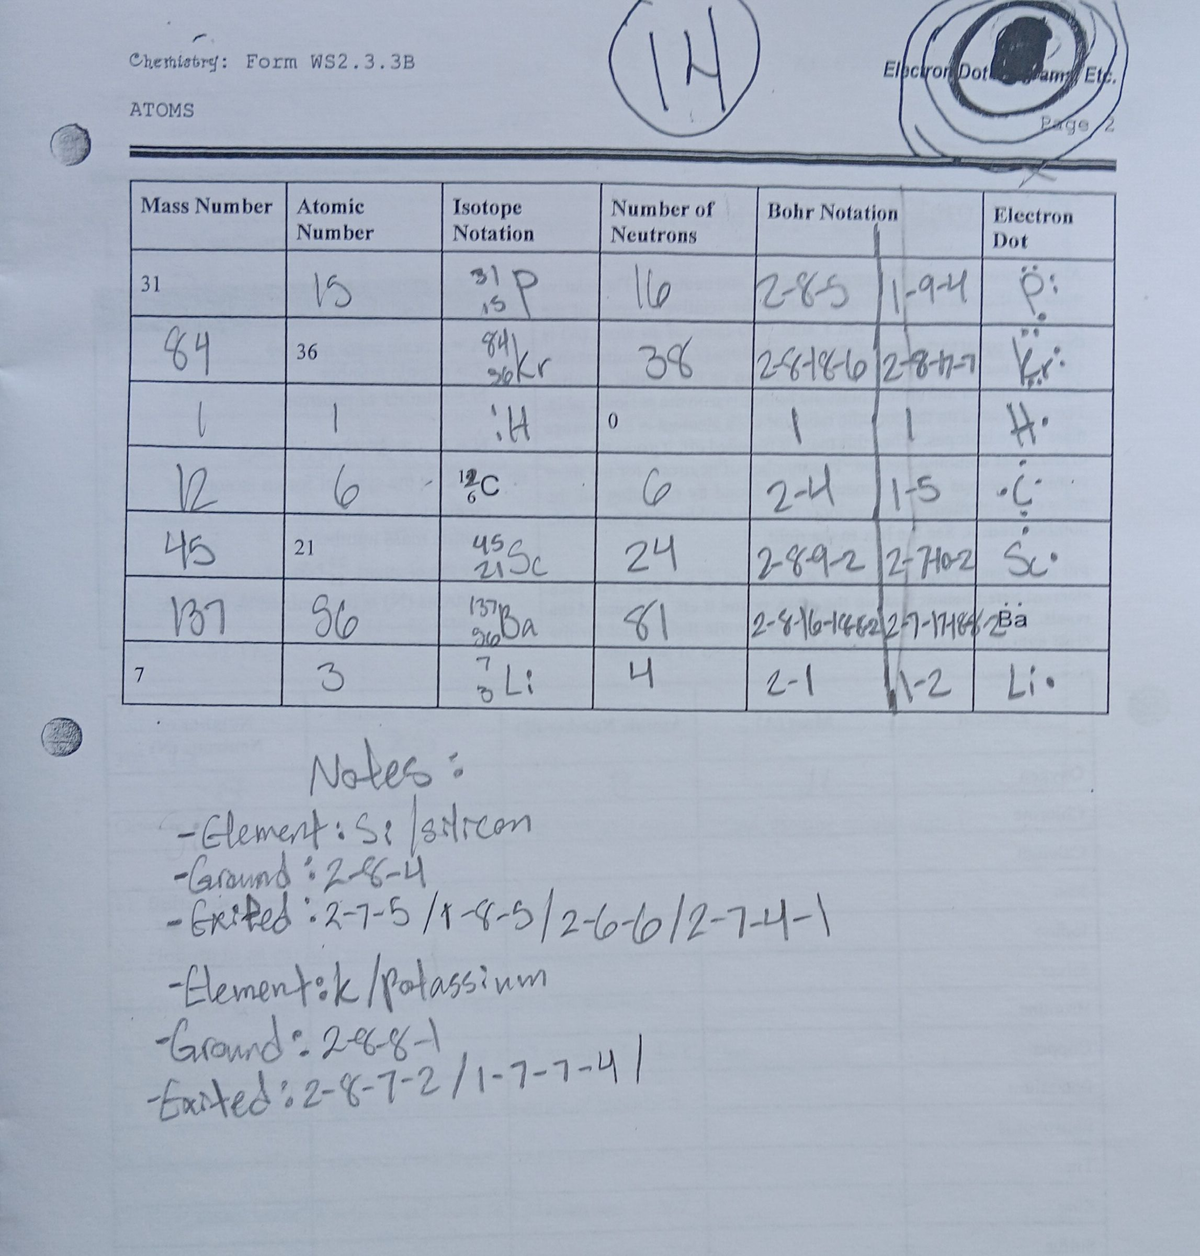 14
Chemistry: Form WS2.3.3B
Electron Dot Etc.
ATOMS
Page 2
Mass Number Atomic Number Isotope Notation Number of Neutrons Bohr Notation Electron Dot
31 15 31 15 P 16 2-8-5 1-9-4 P
84 36 84 36 Kr 38 2-8-18-6 2-8-17-7 Kr
1 1 1 1 H 0 1 1 H
12 6 12 6 C 6 2-4 1-5 C
45 21 45 21 Sc 24 2-8-9-2 2-7-10-2 Sc
137 56 137 56 Ba 81 Ba
7 3 7 3 Li 4 2-1 1-2 Li
Notes:
-Element: Si/silicon
-Ground: 2-8-4
-Exited: 2-7-5/1-8-5/2-6-6/2-7-4-1
-Element: K/Potassium
-Ground: 2-8-8-1
-Exited: 2-8-7-2/1-7-7-4/